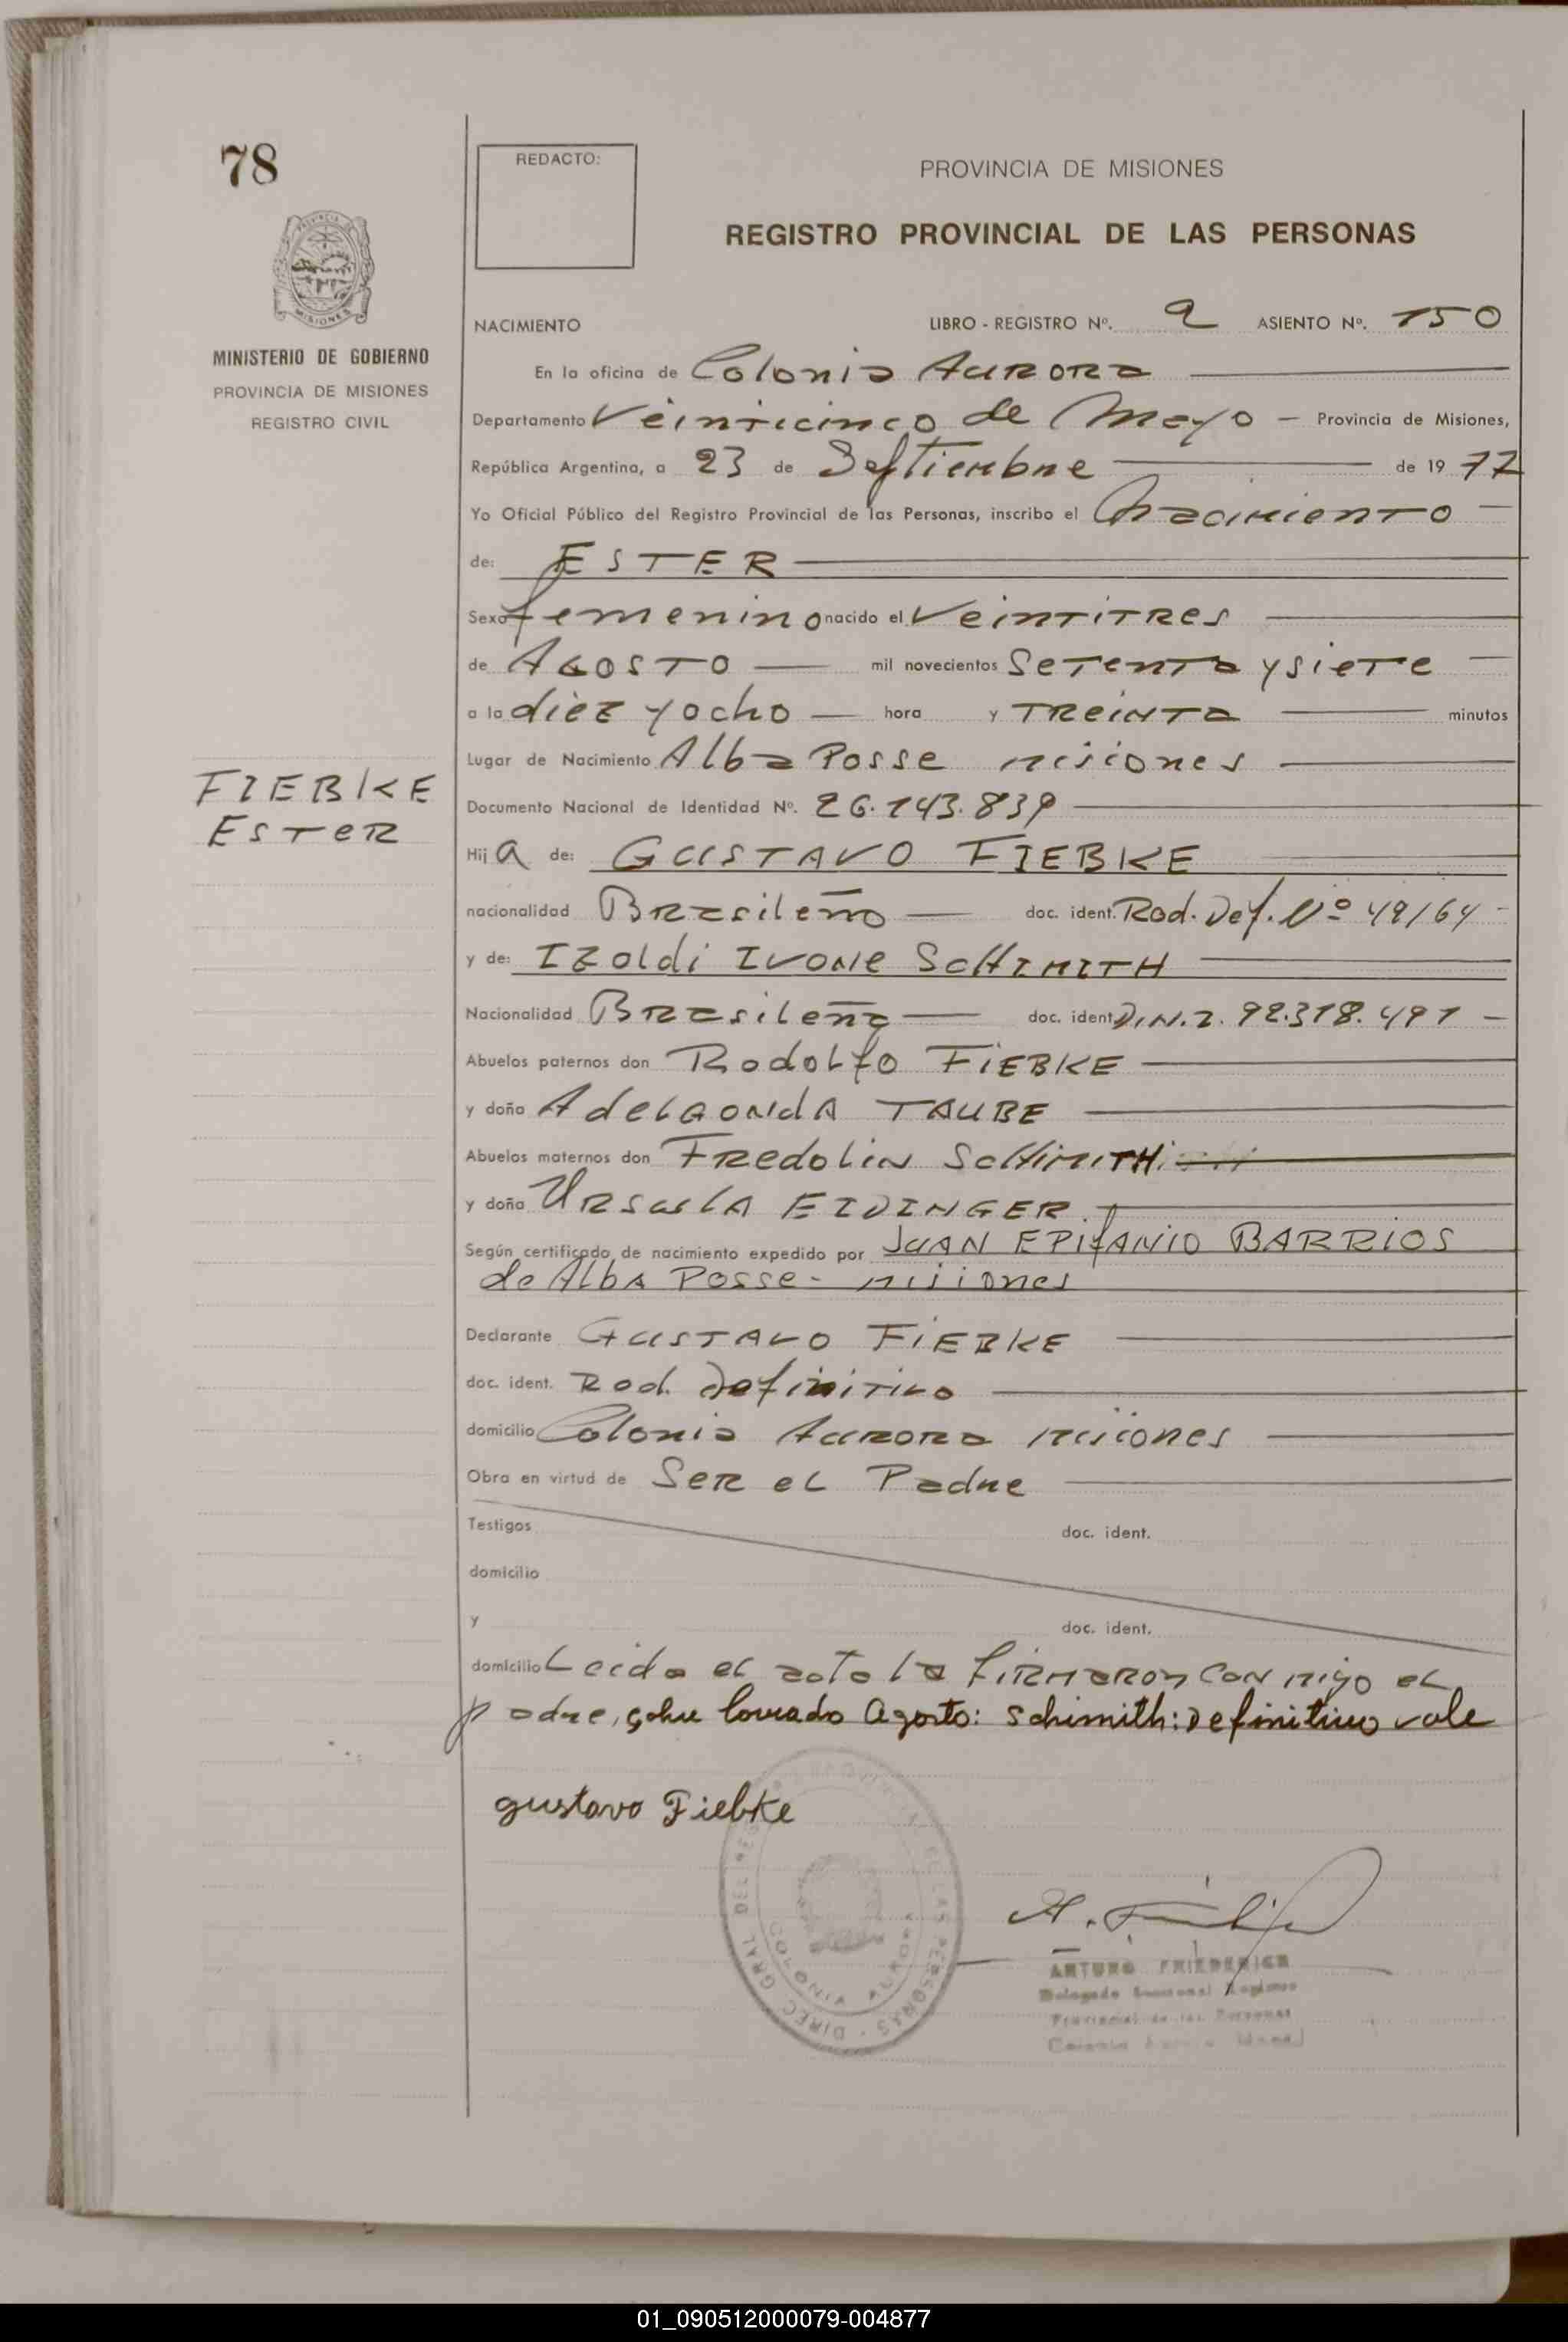 78
REDACTO:
PROVINCIA DE MISIONES
REGISTRO PROVINCIAL DE LAS PERSONAS
MISIONES
MINISTERIO DE GOBIERNO
PROVINCIA DE MISIONES
REGISTRO CIVIL
NACIMIENTO LIBRO - REGISTRO Nº. a ASIENTO Nº. 150
En la oficina de Colonia Aurora
Departamento Veinticinco de Mayo — Provincia de Misiones,
República Argentina, a 23 de Septiembre de 19 77
Yo Oficial Público del Registro Provincial de las Personas, inscribo el Nacimiento
de: ESTER
Sexo femenino nacido el Veintitres
de AGOSTO — mil novecientos Setenta y siete
a la diez y ocho — hora y Treinta minutos
Lugar de Nacimiento Alba Posse Misiones
FIEBKE
ESTER
Documento Nacional de Identidad Nº. 26.143.839
Hij a de: GUSTAVO FIEBKE
nacionalidad Brasileño — doc. ident. Rad. Def. Nº 49/64 -
y de: IZoldi IVONe ScHIMITH
Nacionalidad Brasileña — doc. ident. D.N.I. 92.318.491 —
Abuelos paternos don Rodolfo FiEBKE
y doña AdelGONdA TAUBE
Abuelos maternos don FRedoLiN ScHiMiTH
y doña URSuLA EIDINGER
Según certificado de nacimiento expedido por JUAN EPIfANIO BARRIOS
de Alba Posse - Misiones
Declarante GUSTAVO FiEBKE
doc. ident. Rad. Definitivo
domicilio Colonia Aurora Misiones
Obra en virtud de Ser el Padre
Testigos doc. ident.
domicilio
y doc. ident.
domicilio Leida el acta la firmaron conmigo el
padre, Agosto: Schimith: Definitivo vale
gustavo Fiebke
DIREC. GRAL DEL REG. PROVINCIAL DE LAS PERSONAS
COLONIA AURORA
ARTURO FRIEDERICH
Provincial de las Personas
01_090512000079-004877